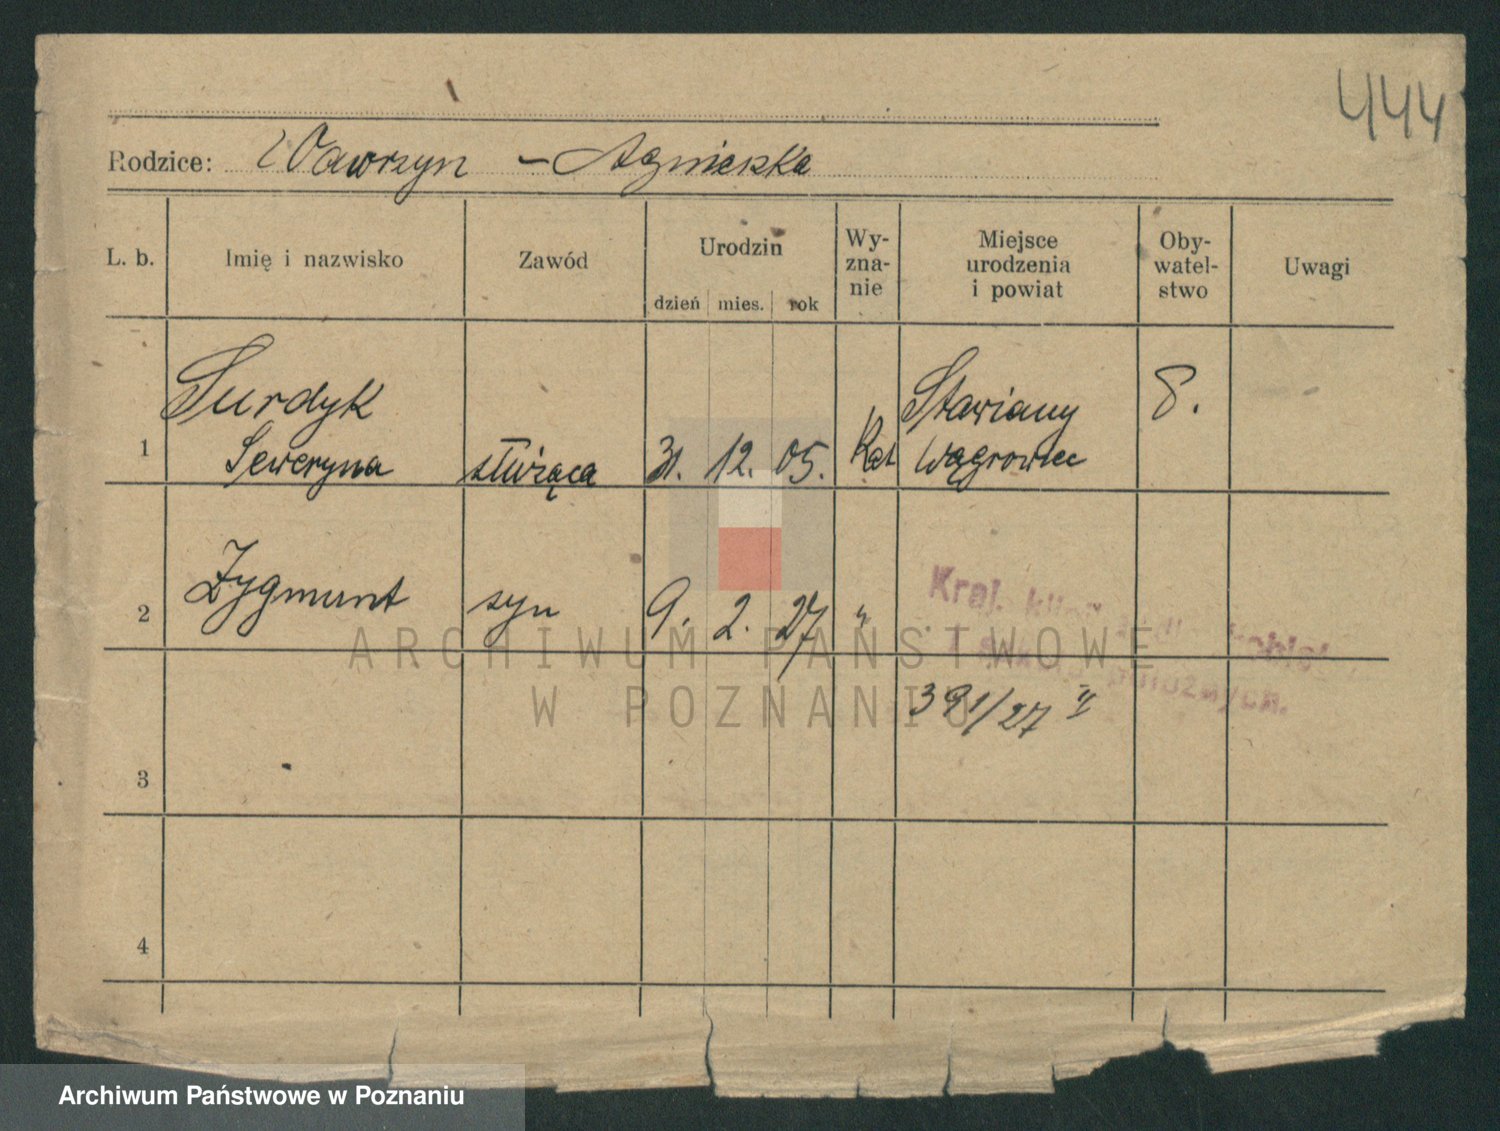 444
Rodzice: Wawrzyn – Agnieszka
L. b. Imię i nazwisko Zawód Urodzin dzień mies. rok Wy-zna-nie Miejsce urodzenia i powiat Oby-watel-stwo Uwagi
Surdyk Stawiany
1 Seweryna służąca 31. 12. 05. Kat Wągrowiec
2 Zygmunt syn 9. 2. 27 "
Kraj.
391/27 II
3
4
ARCHIWUM PAŃSTWOWE
W POZNANIU
Archiwum Państwowe w Poznaniu